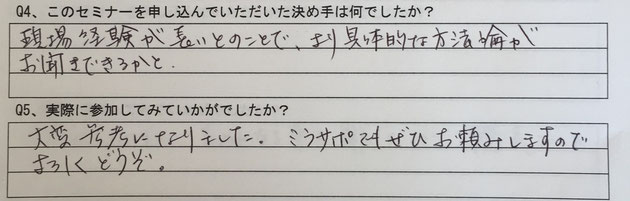 Q4、このセミナーを申し込んでいただいた決め手は何でしたか？
現場経験が長いとのことで、より具体的な方法論が
お聞きできるかと.
Q5、実際に参加してみていかがでしたか？
大変参考になりました。ミラサポでもぜひお頼みしますので
よろしくどうぞ。